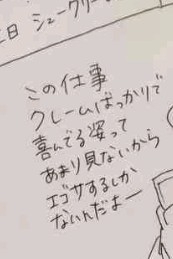 日 シュークリー
この仕事
クレームばっかりで
喜んでる姿って
あまり見ないから
エゴサするしか
ないんだよー